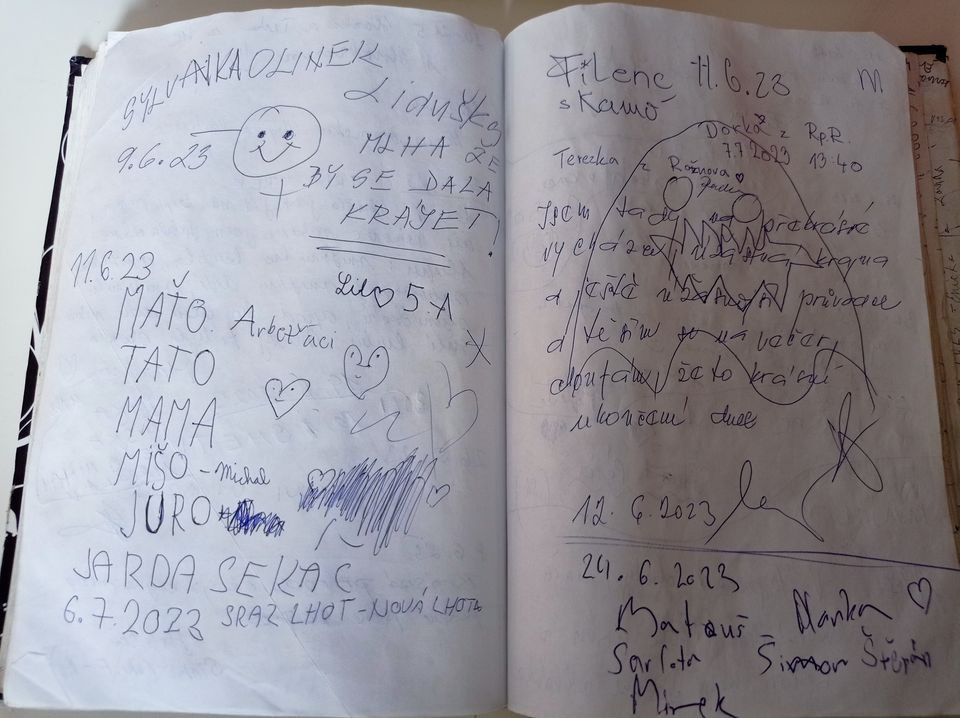 SYLVA
OLINEK
Liduška
9.6.23
MLHA ŽE
BY SE DALA
KRÁJET!
11.6.23
Lili 5.A
MAŤO
TATO
MAMA
MIŠO - Michal
JURO
JARDA SEKAC
6.7.2023 SRAZ LHOT - NOVÁ LHOTA
Filenc 11.6.23
M
s Kamó
Dorka z RpR.
7.7 2023 13:40
Terezka z Rožnova
Jsem tady na překrásné
krajina
průvodce
a těším se na večer,
doufám, že to krásné
ukončení dne
12.6.2023
24.6.2023
Matouš
Šarlota Šimon Štěpán
Mirek